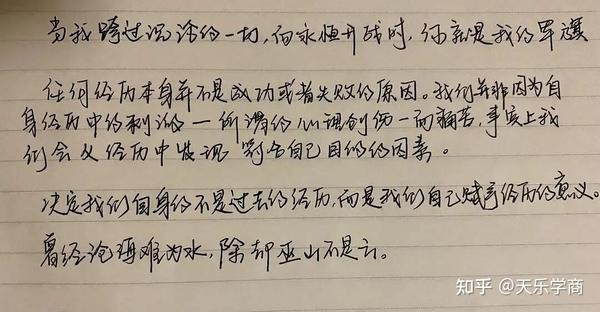 当我跨过沉沦的一切,向永恒开战时,你就是我的军旗
任何经历本身并不是成功或者失败的原因。我们并非因为自
身经历中的刺激——所谓的心理创伤——而痛苦,事实上我
们会从经历中发现 符合自己目的的因素。
决定我们自身的不是过去的经历,而是我们自己赋予经历的意义。
曾经沧海难为水,除却巫山不是云。
知乎 @天乐学商